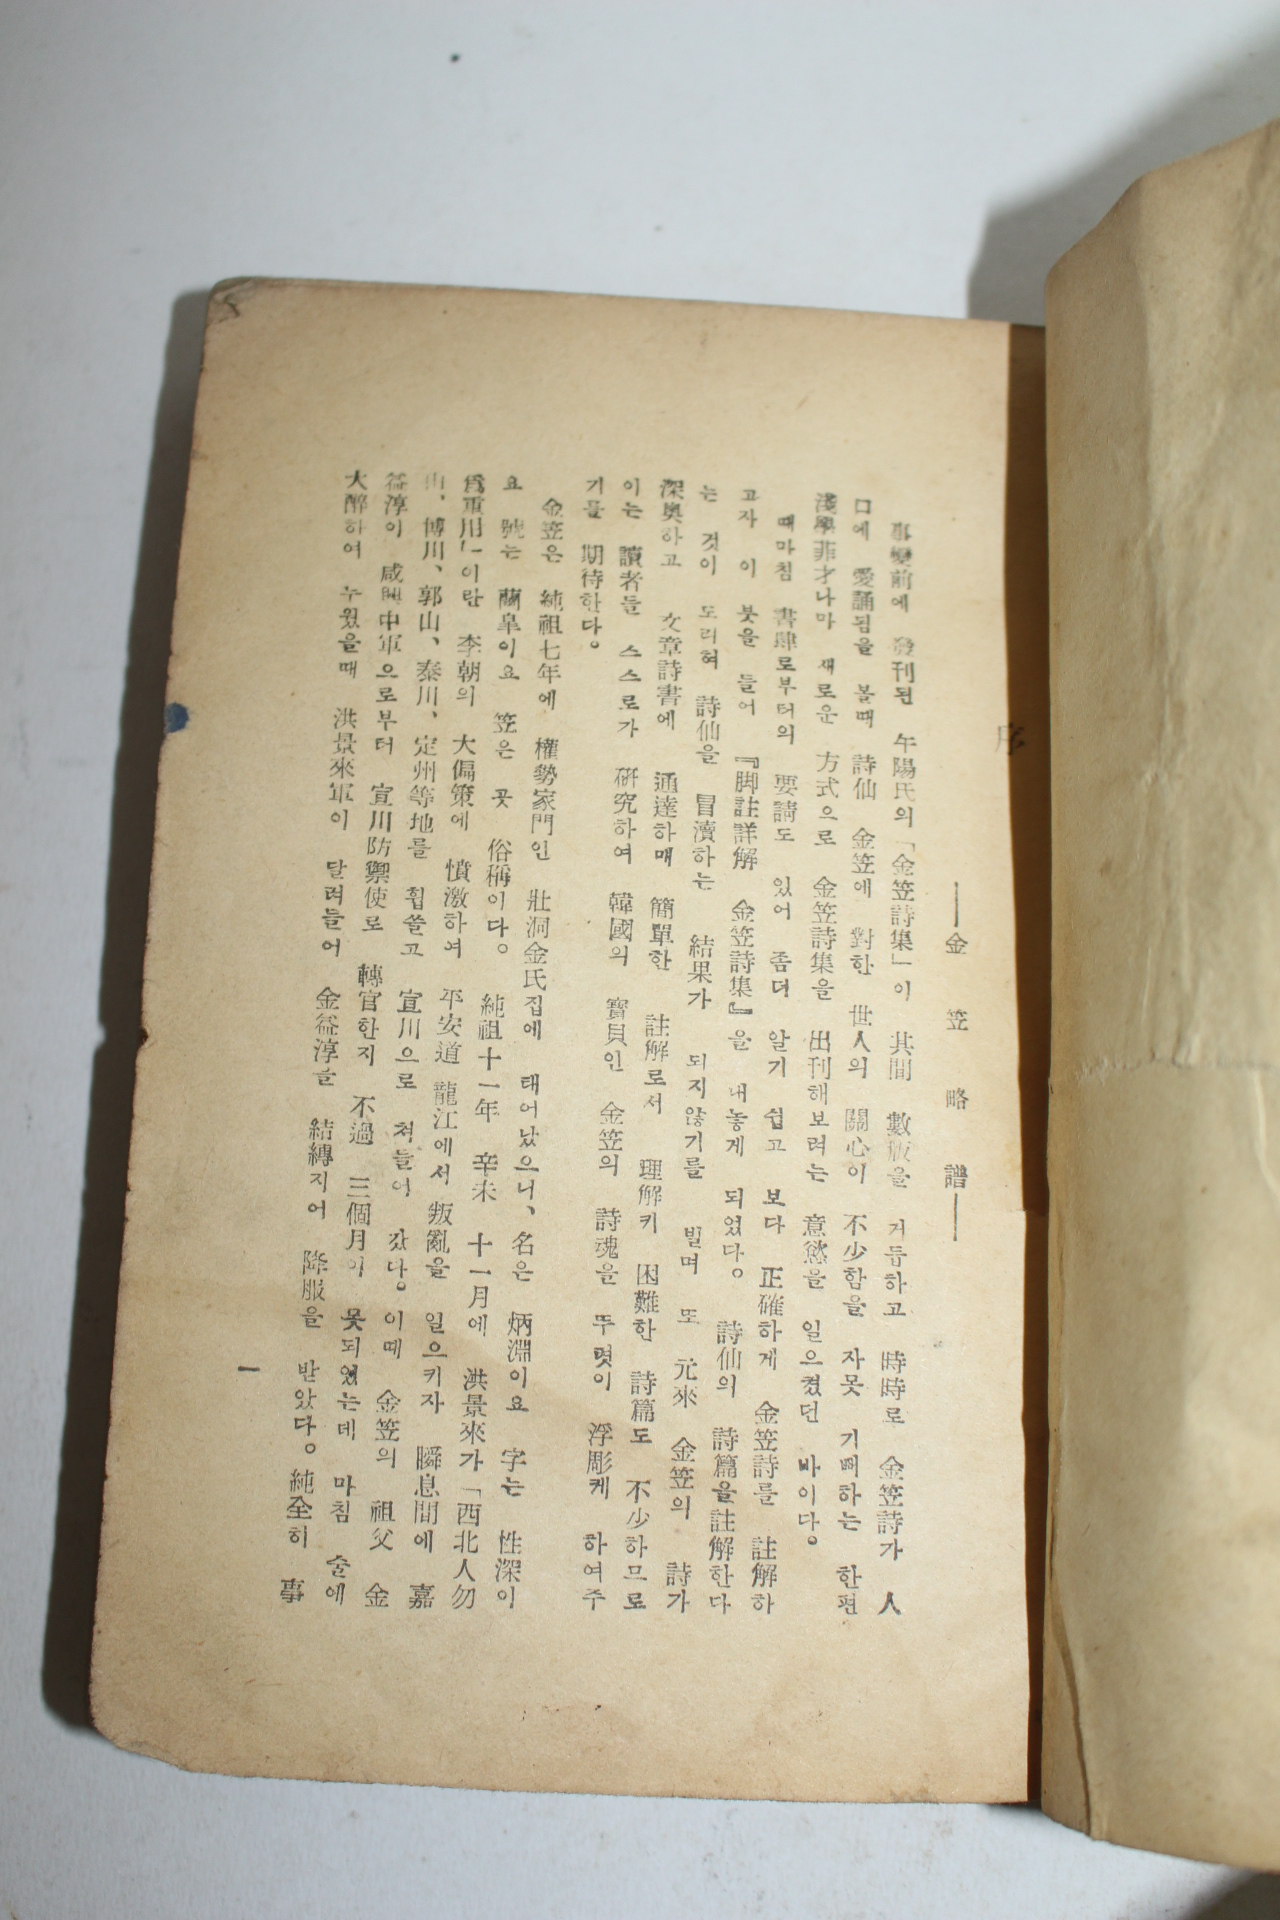 序
──金笠略譜──
事變前에 發刊된 午陽氏의「金笠詩集」이 其間 數版을 거듭하고 時時로 金笠詩가 人
口에 愛誦됨을 볼때 詩仙 金笠에 對한 世人의 關心이 不少함을 자못 기뻐하는 한편
淺學菲才나마 새로운 方式으로 金笠詩集을 出刊해보려는 意慾을 일으켰던 바이다。
때마침 書肆로부터의 要請도 있어 좀더 알기 쉽고 보다 正確하게 金笠詩를 註解하
고자 이 붓을 들어 『脚註詳解 金笠詩集』을 내놓게 되었다。 詩仙의 詩篇을註解한다
는 것이 도리혀 詩仙을 冒瀆하는 結果가 되지않기를 빌며 또 元來 金笠의 詩가
深奧하고 文章詩書에 通達하매 簡單한 註解로서 理解키 困難한 詩篇도 不少하므로
이는 讀者들 스스로가 硏究하여 韓國의 寶貝인 金笠의 詩魂을 뚜렷이 浮彫케 하여주
기를 期待한다。
金笠은 純祖七年에 權勢家門인 壯洞金氏집에 태어났으니、名은 炳淵이요 字는 性深이
요 號는 蘭皐이요 笠은 곳 俗稱이다。 純祖十一年 辛未 十一月에 洪景來가「西北人勿
爲重用」이란 李朝의 大偏策에 憤激하여 平安道 龍江에서 叛亂을 일으키자 瞬息間에 嘉
山、博川、郭山、泰川、定州等地를 휩쓸고 宣川으로 쳐들어 갔다。이때 金笠의 祖父 金
益淳이 咸興中軍으로부터 宣川防禦使로 轉官한지 不過 三個月이 못되였는데 마침 술에
大醉하여 누웠을때 洪景來軍이 달려들어 金益淳을 結縛지어 降服을 받았다。純全히 事
一